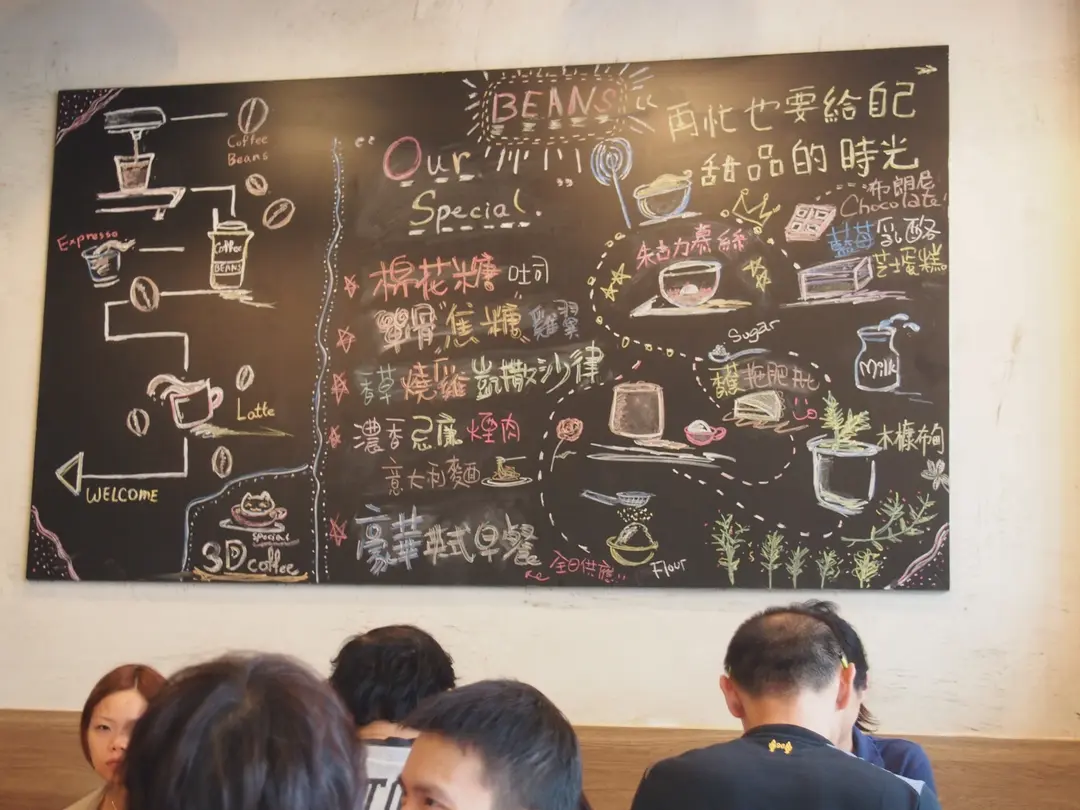 Coffee
Beans
Expresso
Coffee
BEANS
Latte
WELCOME
Special
3D coffee
BEANS
"Our
Special."
棉花糖 吐司
單骨"焦糖"雞翼
香草燒雞凱撒沙律
濃香忌廉煙肉
意大利麵
豪華英式早餐
全日供應
再忙也要給自己
甜品的時光
朱古力慕絲
布朗尼
Chocolate
藍莓乳酪
芝士蛋糕
Sugar
Milk
木糠布甸
Flour